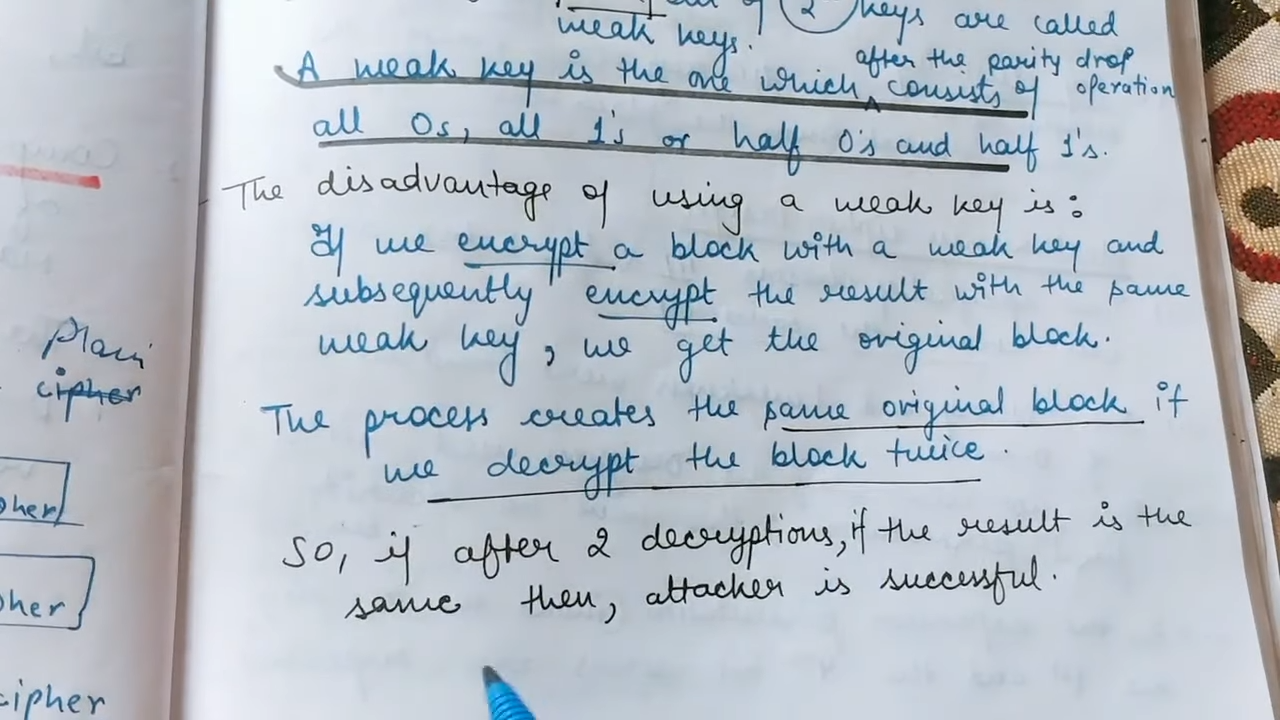 of 2 keys are called
weak keys.
after the parity drop
A weak key is the one which consists of operation
all 0s, all 1's or half 0's and half 1's.
The disadvantage of using a weak key is:
If we encrypt a block with a weak key and
subsequently encrypt the result with the same
weak key, we get the original block.
The process creates the same original block if
we decrypt the block twice.
So, if after 2 decryptions, if the result is the
same then, attacker is successful.
Plain
cipher
pher
pher
cipher